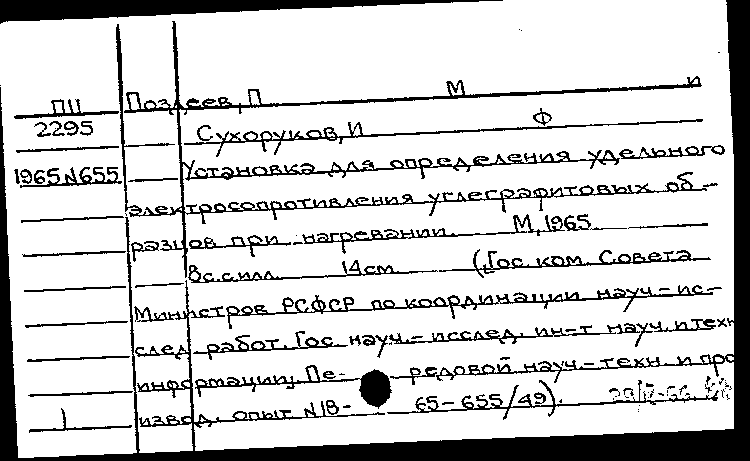 ПII Поздеев, П М и
2295 Сухоруков, И Ф
1965 N655 Установка для определения удельного
электросопротивления углеграфитовых об-
разцов при нагревании. М, 1965.
8с.силл. 14см. (Гос. ком. Совета
Министров РСФСР по координации науч.-ис-
след. работ. Гос. науч.-исслед. ин-т науч. и техн
информации. Пе- редовой науч.-техн. и про
1 извод. опыт N18- 65-655/49).